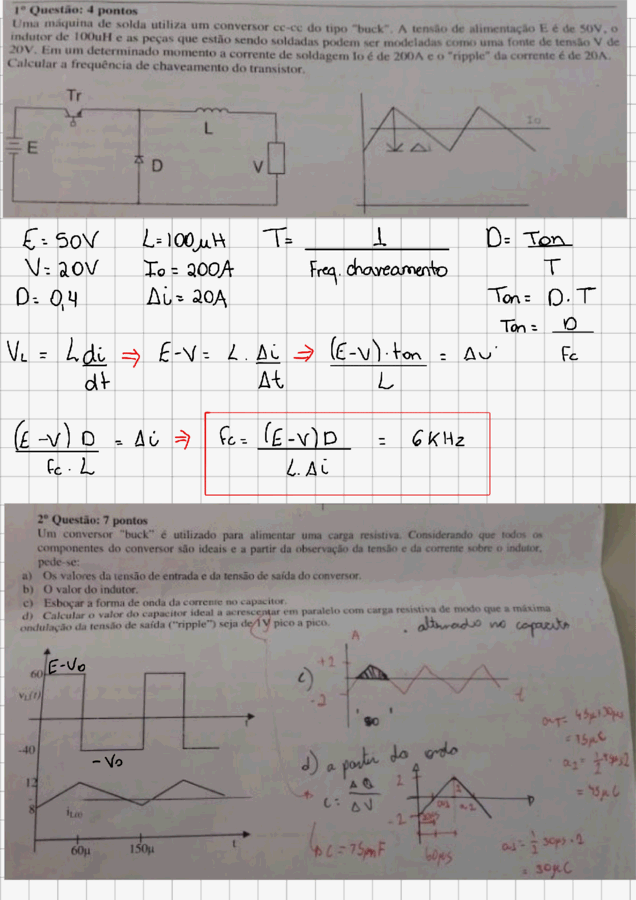 1º Questão: 4 pontos
Uma máquina de solda utiliza um conversor cc-cc do tipo "buck". A tensão de alimentação E é de 50V, o
indutor de 100uH e as peças que estão sendo soldadas podem ser modeladas como uma fonte de tensão V de
20V. Em um determinado momento a corrente de soldagem Io é de 200A e o "ripple" da corrente é de 20A.
Calcular a frequência de chaveamento do transistor.
Tr
L
E
D
V
Io
Δi
E = 50V L = 100μH T = 1 / Freq. chaveamento D = Ton / T
V = 20V Io = 200A
D = 0,4 Δi = 20A Ton = D . T
Ton = D / Fc
VL = L di/dt ⇒ E-V = L . Δi/Δt ⇒ (E-V).ton / L = Δi
(E-V) D / Fc . L = Δi ⇒ Fc = (E-V)D / L.Δi = 6KHz
2º Questão: 7 pontos
Um conversor "buck" é utilizado para alimentar uma carga resistiva. Considerando que todos os
componentes do conversor são ideais e a partir da observação da tensão e da corrente sobre o indutor,
pede-se:
a) Os valores da tensão de entrada e da tensão de saída do conversor.
b) O valor do indutor.
c) Esboçar a forma de onda da corrente no capacitor.
d) Calcular o valor do capacitor ideal a acrescentar em paralelo com carga resistiva de modo que a máxima
ondulação da tensão de saída ("ripple") seja de 1V pico a pico.
60 E-Vo
vL(t)
t
-40
-Vo
12
8
iL(t)
60μ 150μ t
c)
A
+2
-2
t
d) a partir da onda
C = ΔQ / ΔV
2
-2
60μs
= 75μC
= 45μC
= 30μC